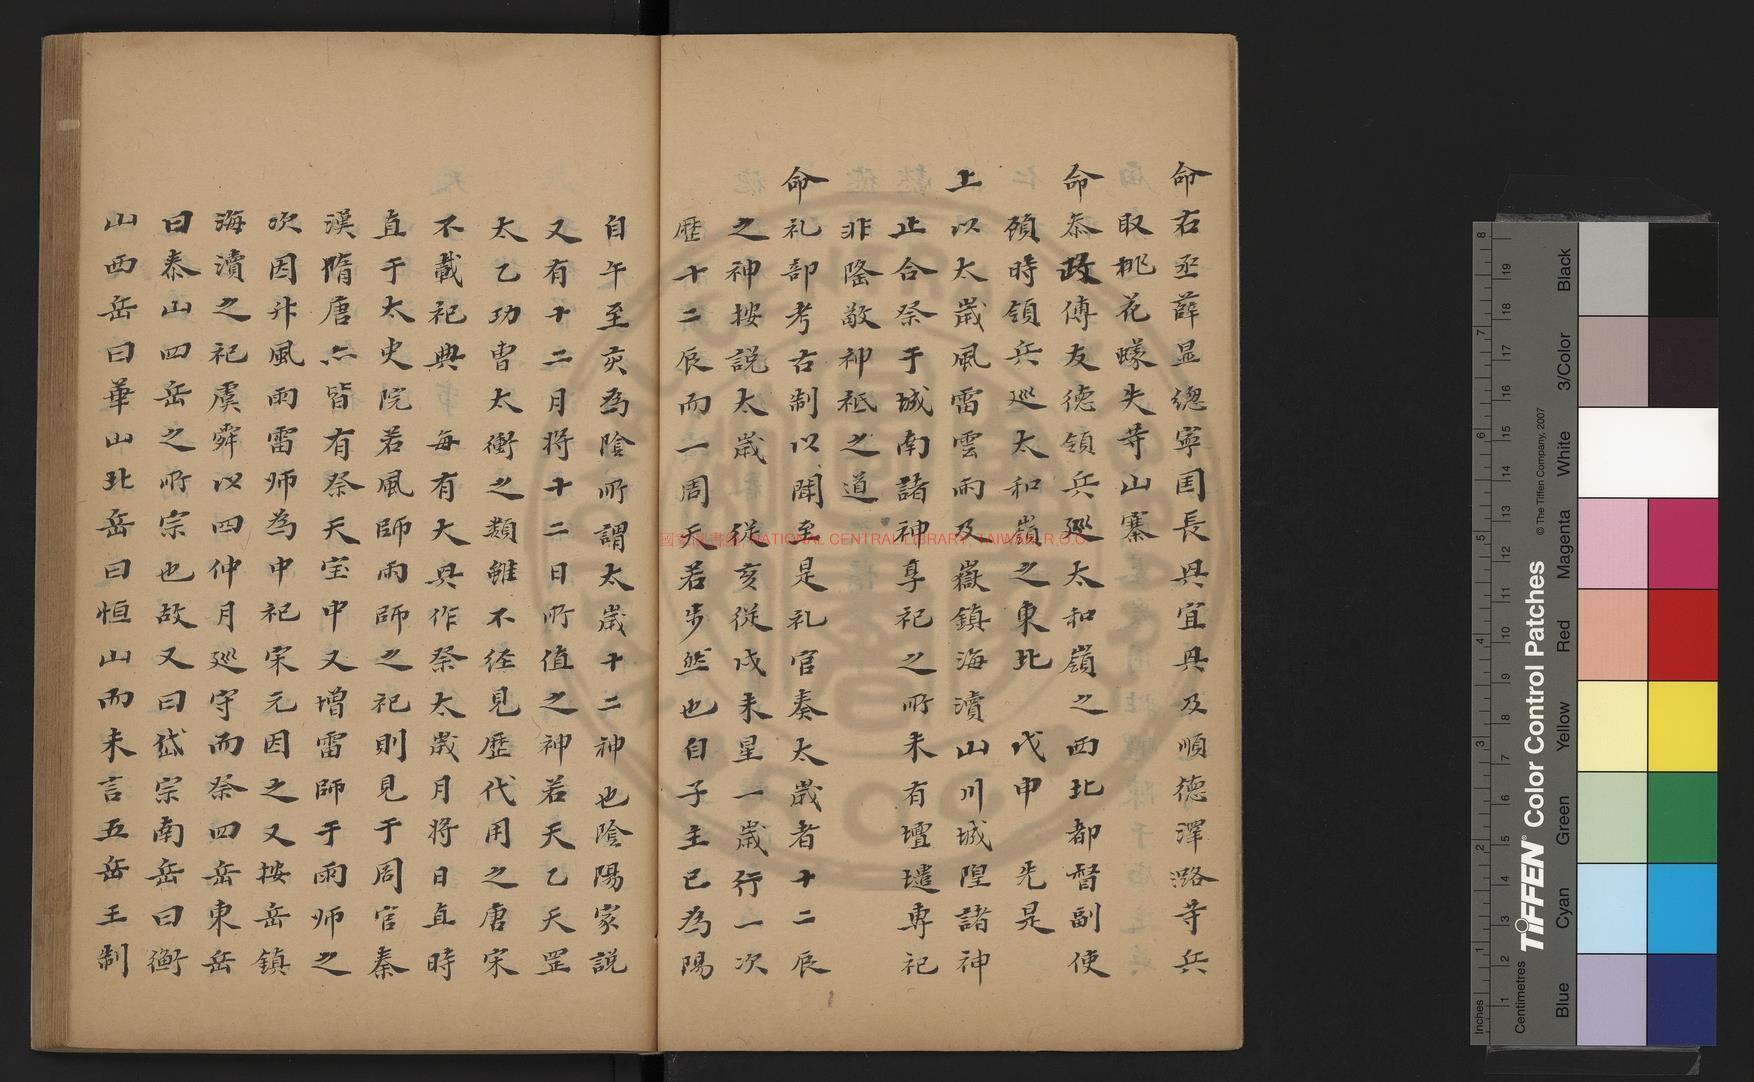 命右丞薛显總寧国長具宜具及順德澤潞等兵
取桃花蠔失等山寨
命叅政傅友德領兵巡太和嶺之西北都督副使
顧時領兵巡太和嶺之東北 戊申 先是
上以太歲風雷雲雨及嶽鎮海瀆山川城隍諸神
止合祭于城南諸神享祀之所未有壇壝專祀
非隆敬神祇之道
命礼部考古制以聞至是礼官奏太歲者十二辰
之神按説太歲從亥從戌未星一歲行一次
歷十二辰而一周天若步然也自子主巳為陽
自午至亥為陰所謂太歲十二神也陰陽家説
又有十二月将十二日所值之神若天乙天罡
太乙功曺太衝之類雖不经見歷代用之唐宋
不載祀典每有大具作祭太歲月将日直時
直于太史院若風師雨師之祀則見于周官秦
漢隋唐亦皆有祭天宝中又增雷師于雨师之
次因升風雨雷师為中祀宋元因之又按岳鎮
海瀆之祀虞舜以四仲月巡守而祭四岳東岳
曰泰山四岳之所宗也故又曰岱宗南岳曰衡
山西岳曰華山北岳曰恒山而未言五岳王制
國家圖書館 NATIONAL CENTRAL LIBRARY, TAIWAN, R.O.C
Inches
1 2 3 4 5 6 7 8
Centimetres
1 2 3 4 5 6 7 8 9 10 11 12 13 14 15 16 17 18 19
TIFFEN® Color Control Patches
© The Tiffen Company, 2007
Blue Cyan Green Yellow Red Magenta White 3/Color Black